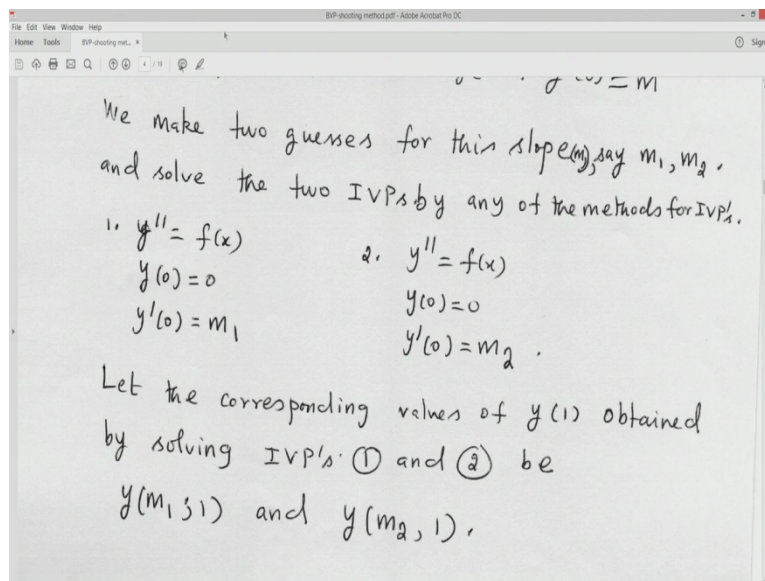 BVP-shooting method.pdf - Adobe Acrobat Pro DC
File Edit View Window Help
Home Tools BVP-shooting met... × Sign
4 / 19
y'(0) = m
We make two guesses for this slope(m), say m₁, m₂.
and solve the two IVPs by any of the methods for IVP's.
1. y'' = f(x)
y(0) = 0
y'(0) = m₁
2. y'' = f(x)
y(0) = 0
y'(0) = m₂.
Let the corresponding values of y(1) obtained
by solving IVP's ① and ② be
y(m₁; 1) and y(m₂, 1).